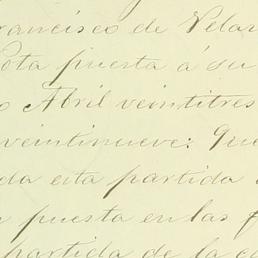 rancisco de Velar
ota puesta á su
o Abril veintitres
veintinueve: Que
da esta partida
puesta en las f
partida de la